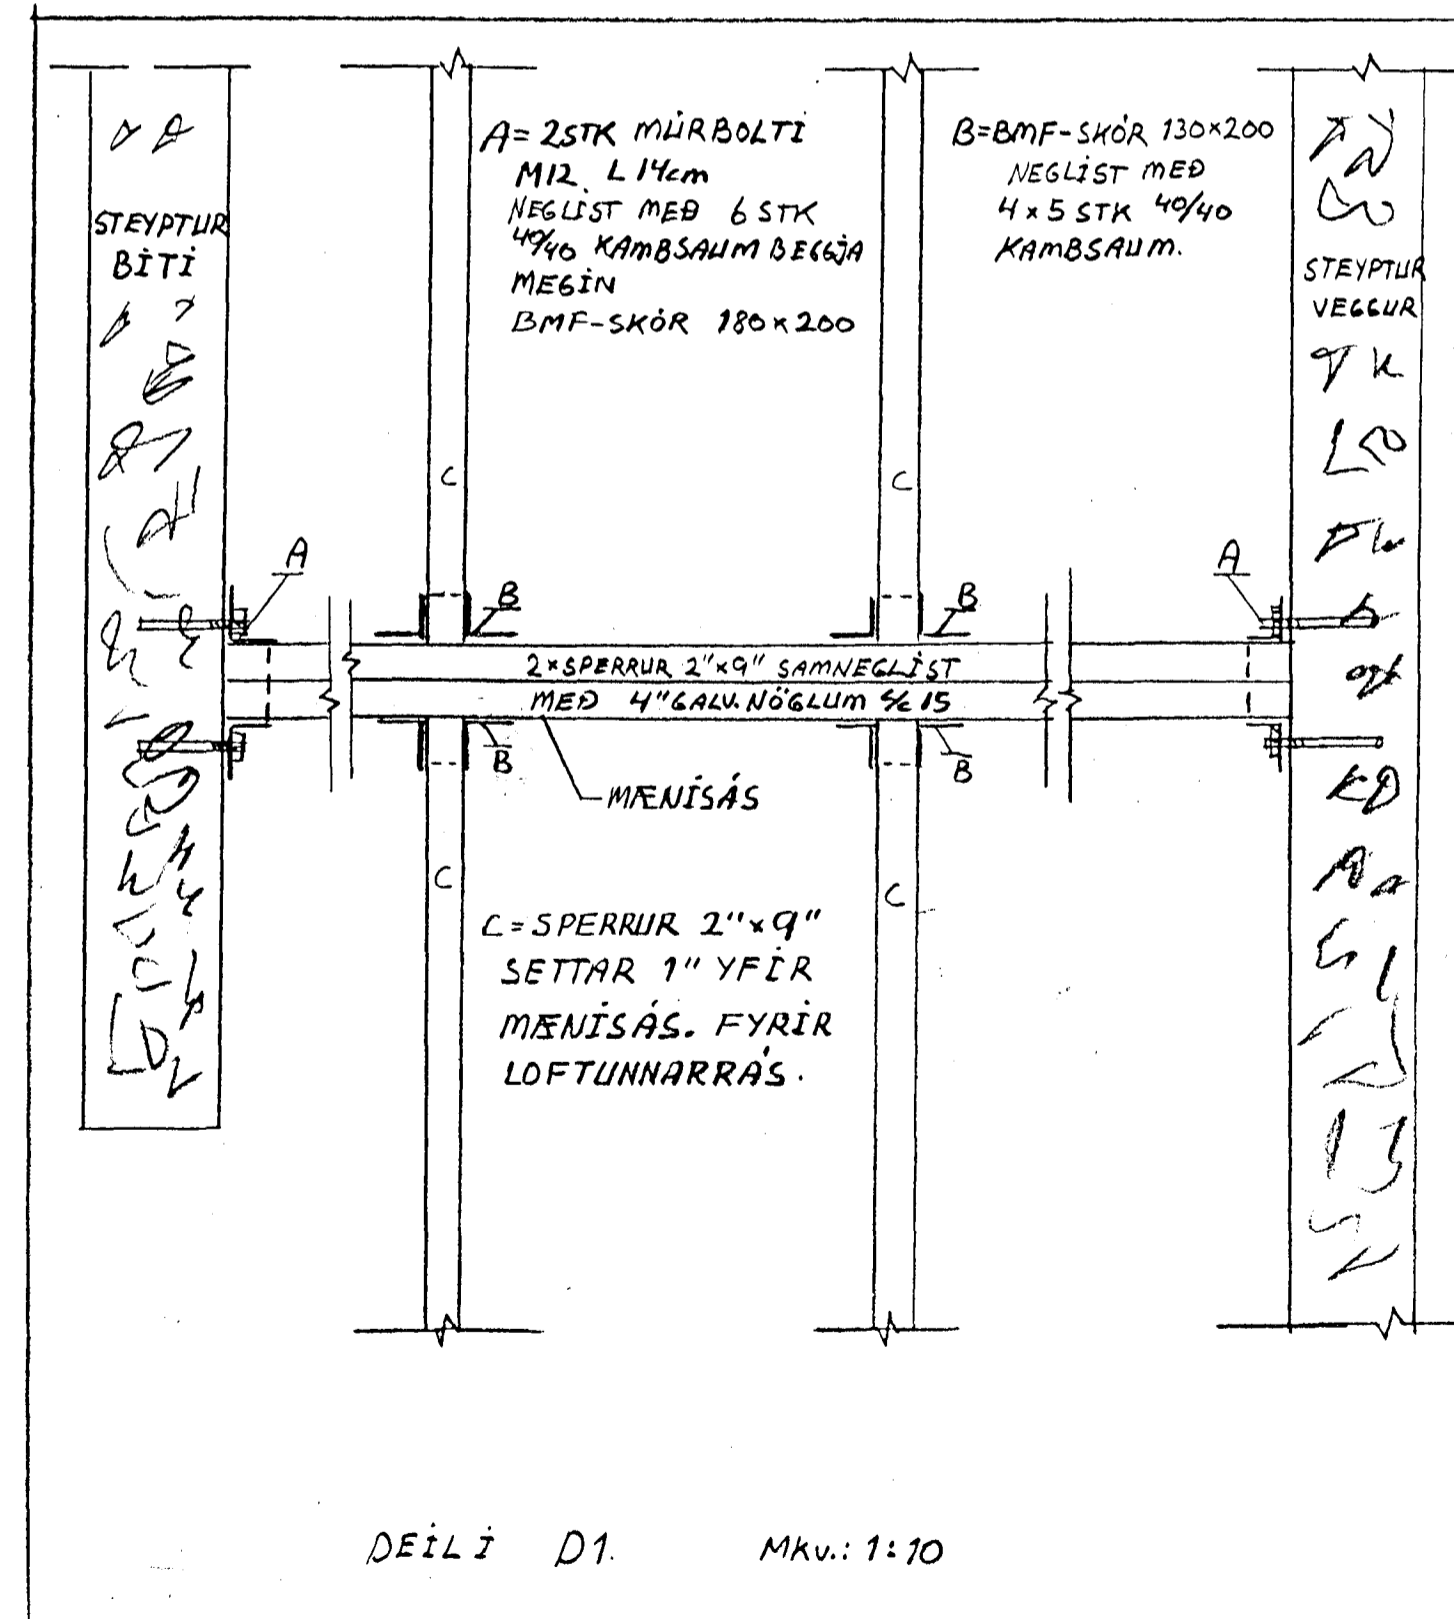 A = 2STK MÚRBOLTI
M12. L 14cm
NEGLIST MEÐ 6 STK
40/40 KAMBSAUM BEGGJA
MEGIN
BMF-SKÓR 180×200
B=BMF-SKÓR 130×200
NEGLIST MEÐ
4×5 STK 40/40
KAMBSAUM.
STEYPTUR
BITI
STEYPTUR
VEGGUR
C
C
A
A
B
B
2×SPERRUR 2"×9" SAMNEGLIST
MEÐ 4" GALV. NÖGLUM c/c 15
B
B
MÆNISÁS
C
C
C = SPERRUR 2"×9"
SETTAR 1" YFIR
MÆNISÁS. FYRIR
LOFTUNNARRÁS.
DEILI D1.
Mkv.: 1:10